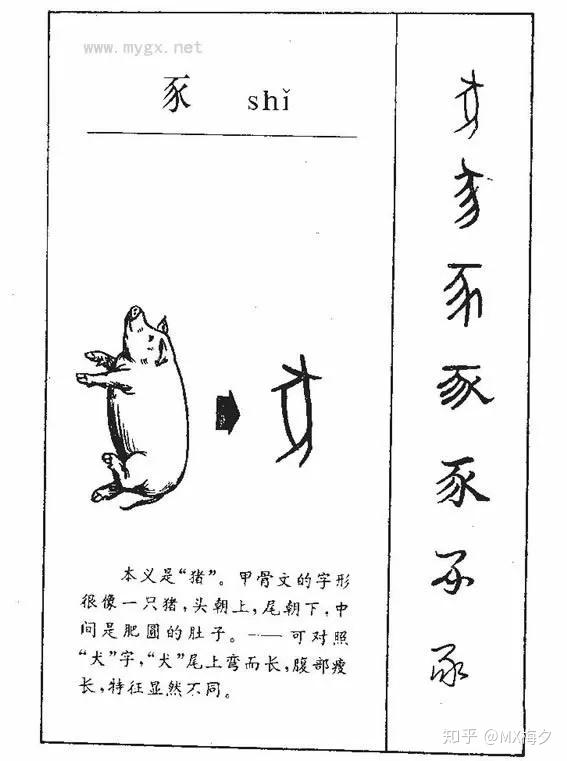 www.mygx.net
豕 shǐ
本义是“猪”。甲骨文的字形
很像一只猪,头朝上,尾朝下,中
间是肥圆的肚子。——可对照
“犬”字,“犬”尾上弯而长,腹部瘦
长,特征显然不同。
豕
豕
豕
知乎 @MX海夕